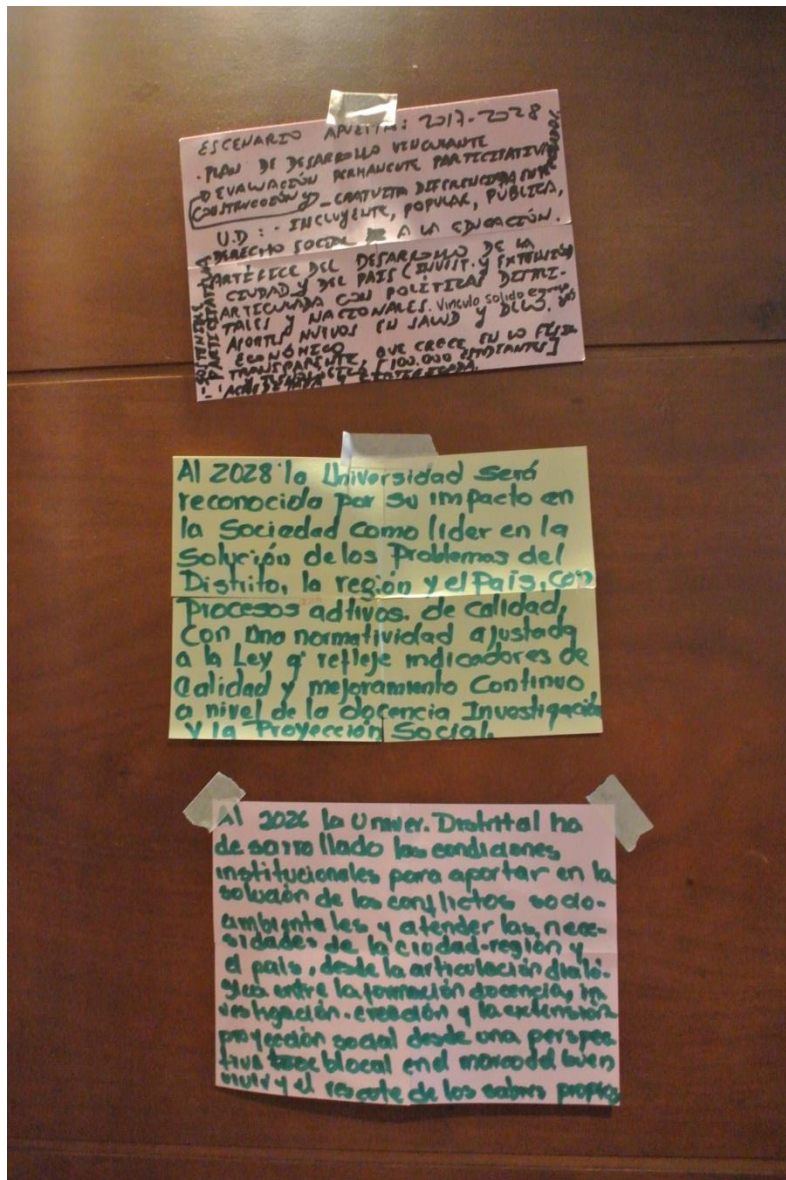 ESCENARIO APUESTA: 2017-2028
- PLAN DE DESARROLLO VINCULANTE
D EVALUACIÓN PERMANENTE PARTICIPATIVA
CONSTRUCCIÓN Y - GRATUITA DIFERENCIADA
U.D: - INCLUYENTE, POPULAR, PÚBLICA,
DERECHO SOCIAL A LA EDUCACIÓN.
ARTÍFICE DEL DESARROLLO DE LA
CIUDAD Y DEL PAIS (INVEST. Y EXTENSIÓN
ARTICULADA CON POLÍTICAS DISTRI-
TALES Y NACIONALES. Vinculo solido
APORTES NUEVOS EN SALUD Y
ECONÓMICO
TRANSPARENTE, QUE CRECE EN LO FÍSICO
Y TECNOLÓGICO [100.000 ESTUDIANTES]
- SOSTENIBLE
- PARTICIPATIVA
Al 2028 la Universidad Será
reconocida por su impacto en
la Sociedad como lider en la
Solución de los Problemas del
Distrito, la región y el País, con
Procesos adtivos. de Calidad,
Con una normatividad ajustada
a la Ley q' refleje indicadores de
Calidad y mejoramiento Continuo
a nivel de la docencia Investigación
y la Proyección Social.
Al 2026 la Univer. Distrital ha
desarrollado las condiciones
institucionales para aportar en la
solución de los conflictos socio-
ambientales y atender las nece-
sidades de la ciudad-región y
el país, desde la articulación dialó-
gica entre la formación docencia, in
vestigación-creación y la extensión
proyección social desde una perspec
tiva blocal en el marco del buen
vivir y el rescate de los saberes propios